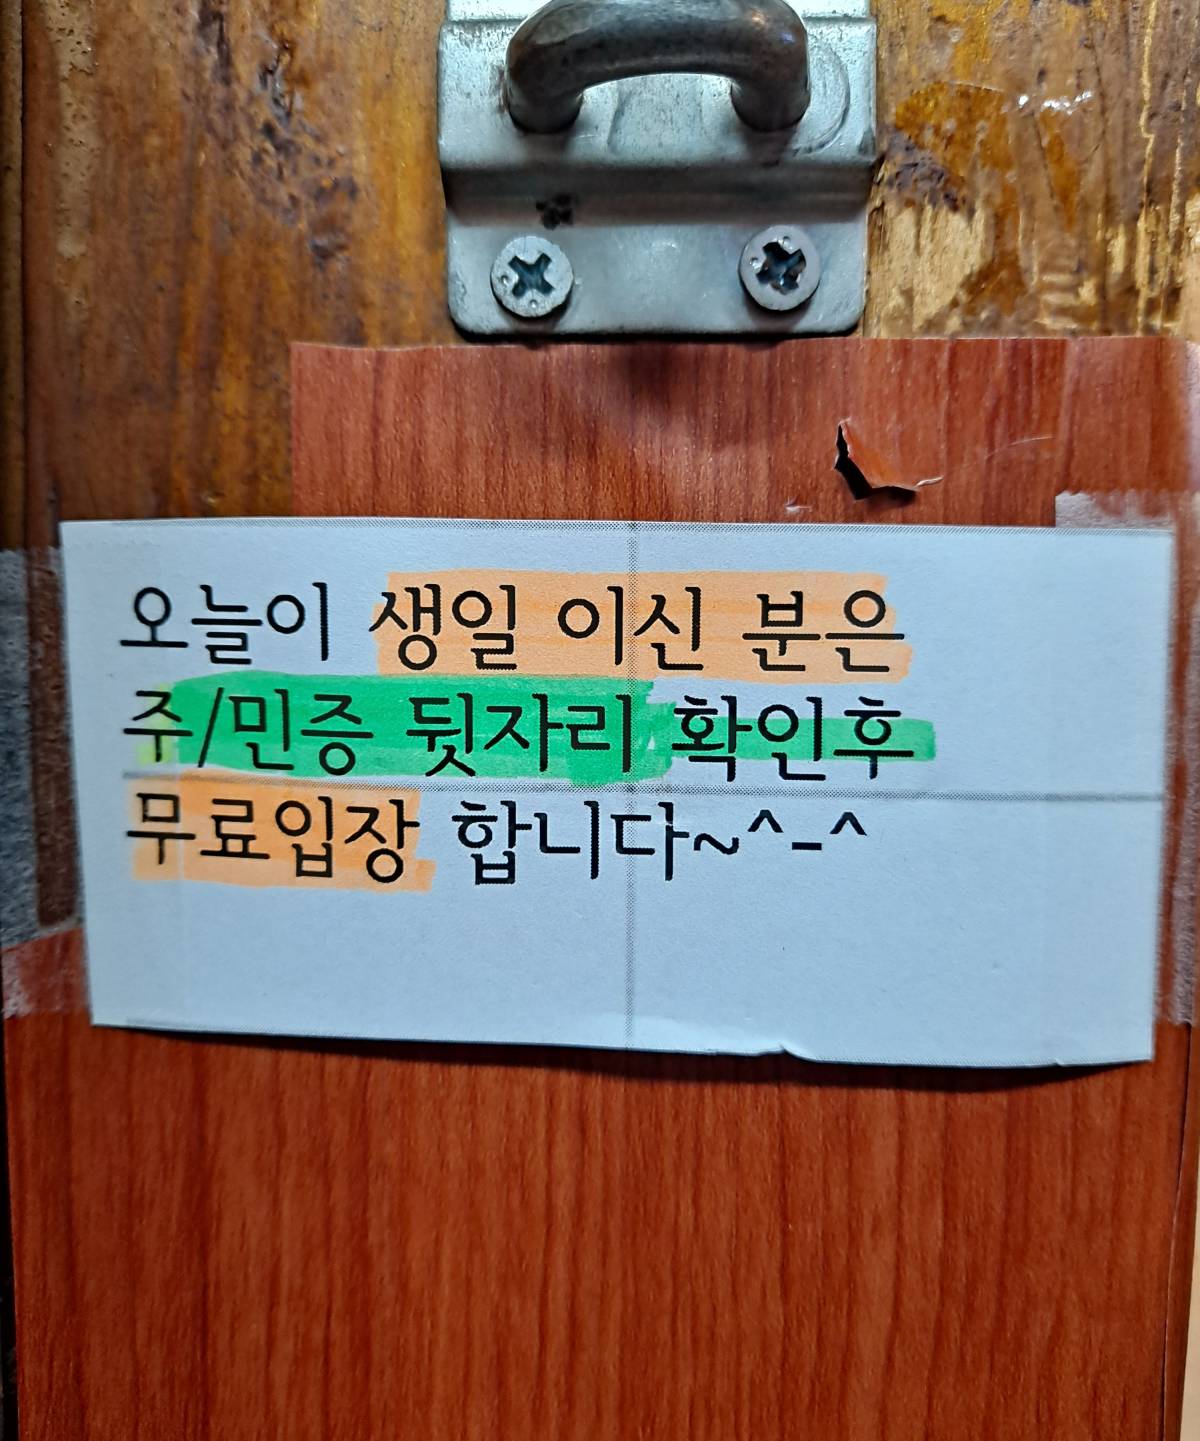 오늘이 생일 이신 분은
주/민증 뒷자리 확인후
무료입장 합니다~^-^